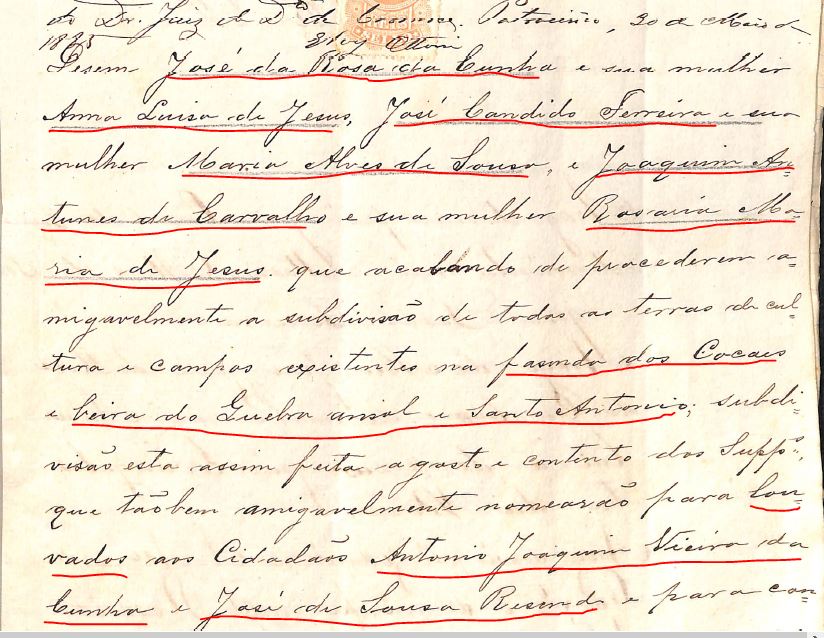 do Dr. Juiz de D.º da Comarca. Patrocinio, 30 de Maio de
1885 Eloy Ottoni
Disem José da Rosa da Cunha e sua mulher
Anna Luisa de Jesus, José Candido Ferreira e sua
mulher Maria Alves de Sousa, e Joaquim An=
tunes de Carvalho e sua mulher Rosaria Ma=
ria de Jesus. que acabando de procederem a=
migavelmente a subdivisão de todas as terras de cul=
tura e campos existentes na fasenda dos Cocaes
e beira do Quebra ansol e Santo Antonio; subdi=
visão esta assim feita a gosto e contento dos Supp.es,
que tãobem amigavelmente nomearão para Lou=
vados aos Cidadãos Antonio Joaquim Vieira da
Cunha e José de Sousa Resende e para con=